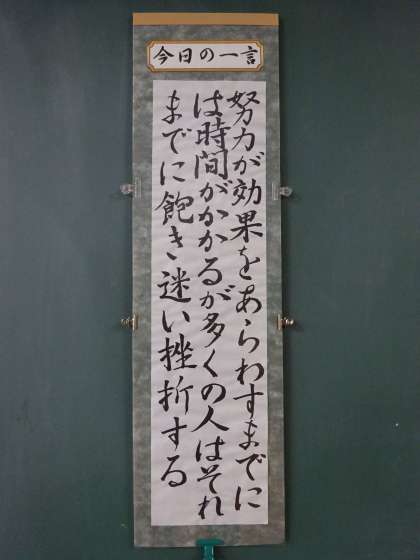 今日の一言
努力が効果をあらわすまでに
は時間がかかるが多くの人はそれ
までに飽き迷い挫折する